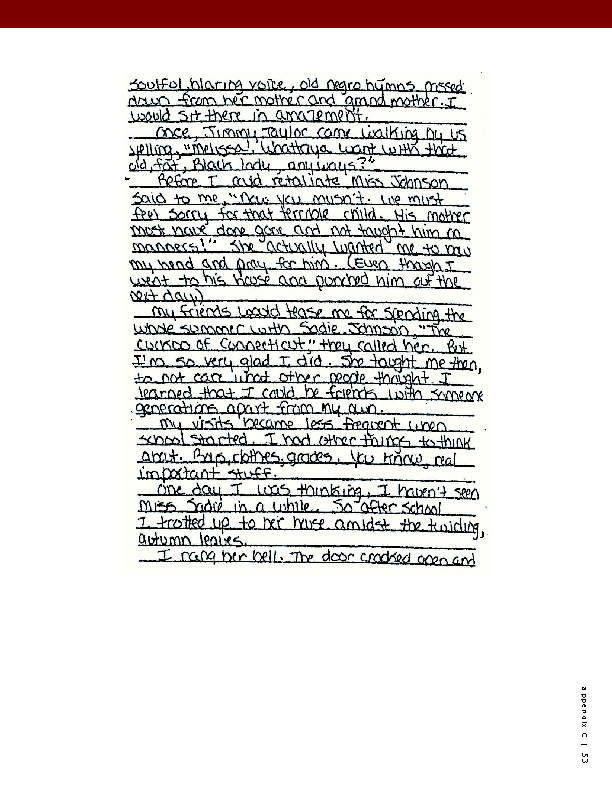 soulful, blaring voice, old negro hymns passed
down from her mother and grand mother. I
would sit there in amazement.
Once, Jimmy Taylor came walking by us
yelling, "Melissa! Whattaya want with that
old, fat, Black lady, anyways?"
Before I could retaliate Miss Johnson
said to me, "Now you musn't. We must
feel sorry for that terrible child. His mother
must have done gone and not taught him no
manners!" She actually wanted me to bow
my head and pray for him. (Even though I
went to his house and punched him out the
next day.)
My friends would tease me for spending the
whole summer with Sadie Johnson, "The
cuckoo of Connecticut," they called her. But
I'm so very glad I did. She taught me then,
to not care what other people thought. I
learned that I could be friends with someone
generations apart from my own.
My visits became less frequent when
school started. I had other things to think
about. Boys, clothes, grades. You know, real
important stuff.
One day I was thinking, I haven't seen
Miss Sadie in a while. So after school
I trotted up to her house amidst the twirling,
autumn leaves.
I rang her bell. The door cracked open and
appendix C | 53